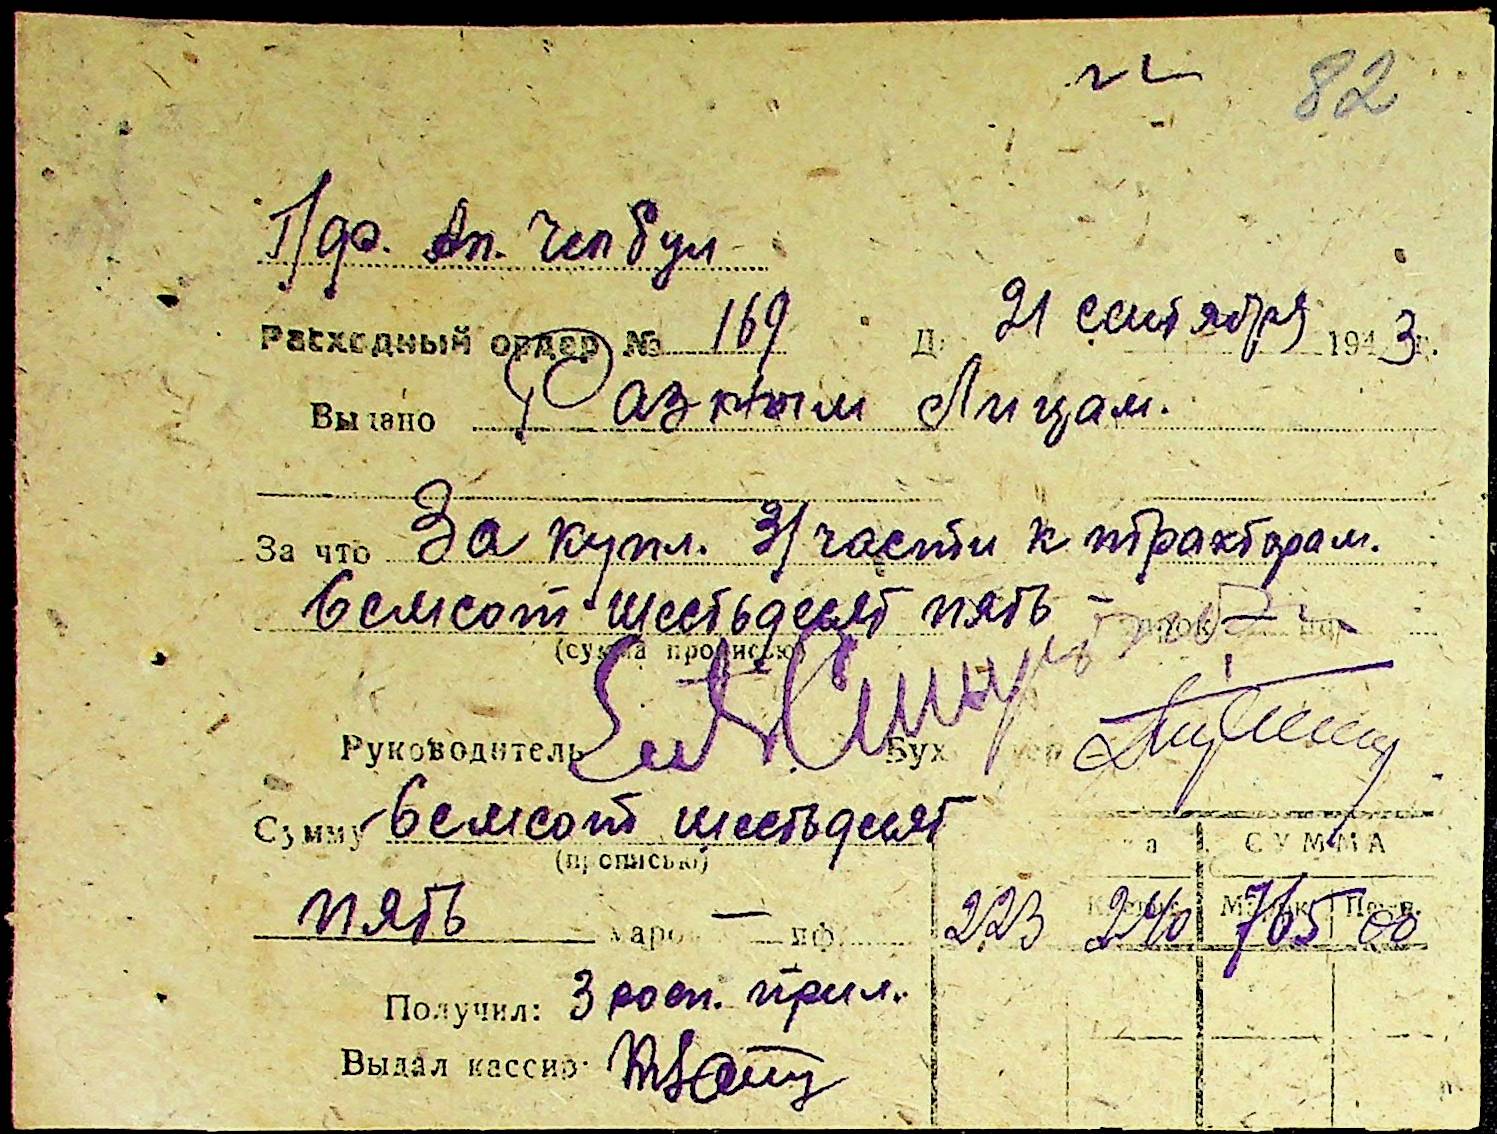 82
Расходный ордер № 169 21 сентября 1943 г.
Выдано Разным Лицам.
За что За купл. З/части к тракторам.
Семсот шестьдесят пять -
(сумма прописью)
Руководитель
Сумму Семсот шестьдесят
(прописью)
СУММА
пять — марок — пф. 223 240 765 00
Получил: 3 росп. прил.
Выдал кассир: